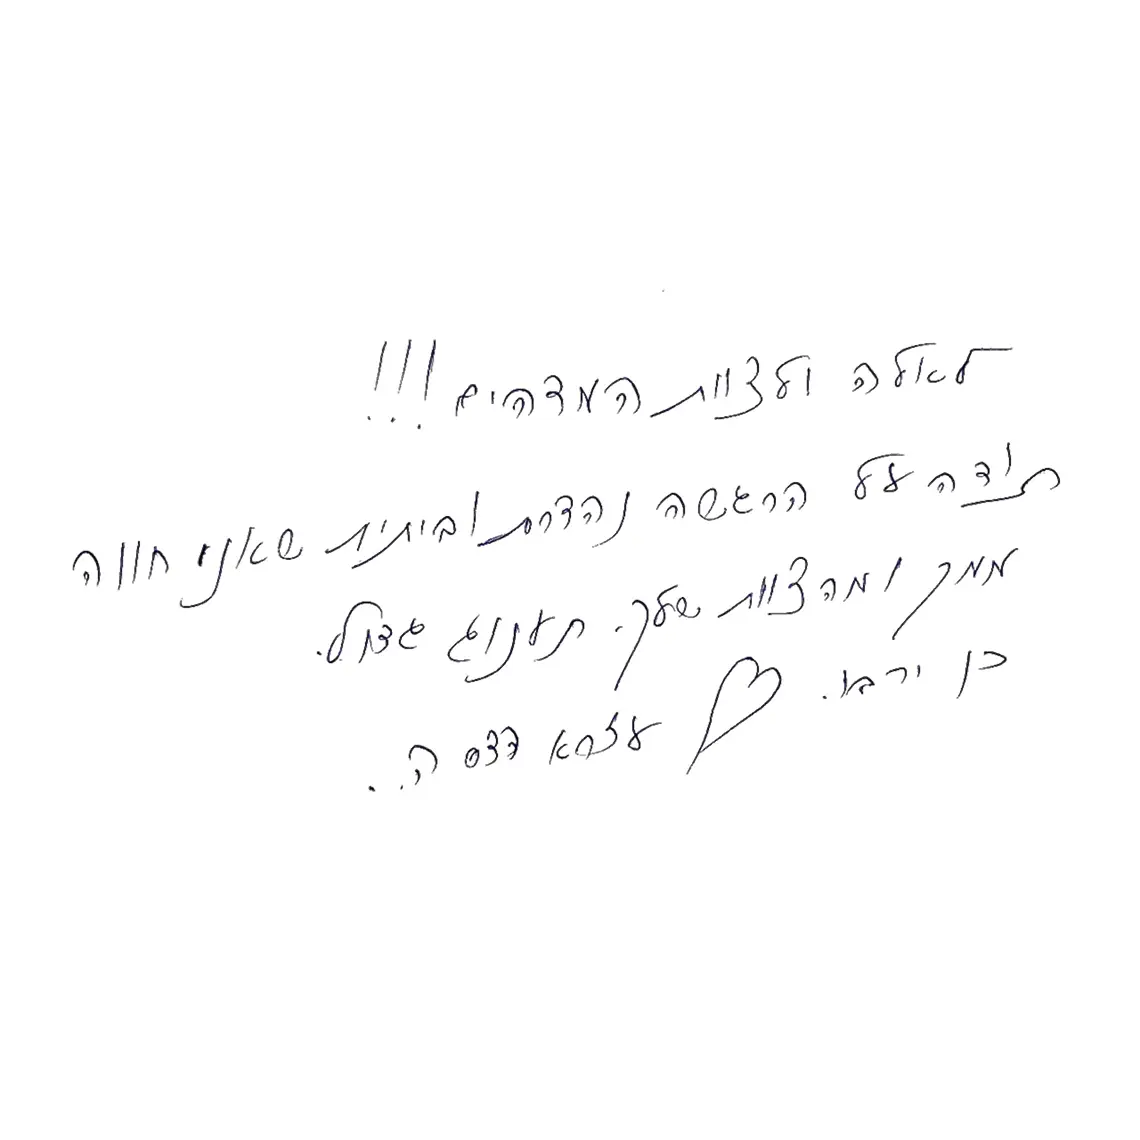 לאלה ולצוות המדהים!!!
תודה על הרגשה נהדרת וביתית שאני חווה
ממך ומהצוות שלך. תענוג גדול.
כן ירבו. עזרא דדס ה..